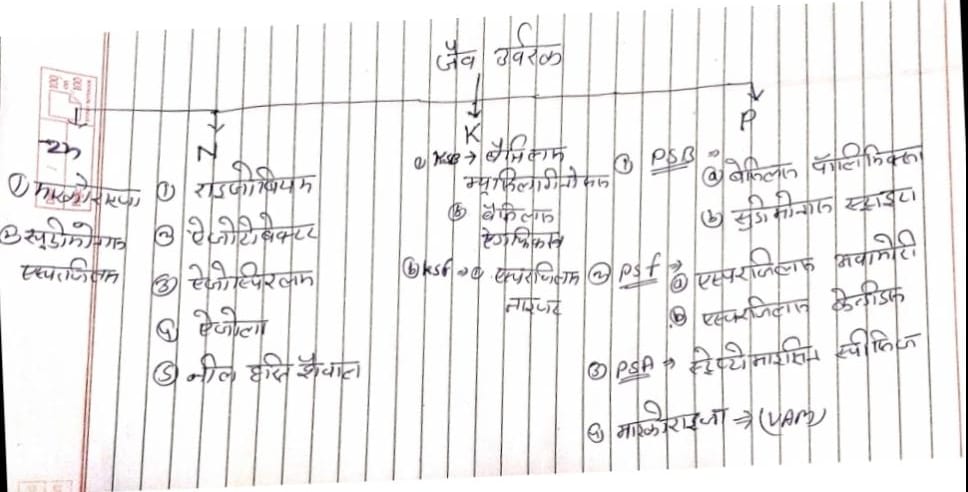 जैव उर्वरक
Zn
① माइकोराइजा
② स्यूडोमोनास
एस्परजिलस
N
① राइजोबियम
② ऐजोटोबैक्टर
③ ऐजोस्पिरलम
④ ऐजोला
⑤ नील हरित शैवाल
K
ⓐ KSB → बैसिलस
म्यूसिलागीनोसस
ⓑ बैसिलस
ⓑ KSF → ⓐ एस्परजिलस
नाइजर
P
① PSB →
ⓐ बेसिलस पॉलिमिक्सा
ⓑ सुडोमोनास स्ट्राइटा
② PSF →
ⓐ एस्परजिलस अवामोरी
ⓑ एस्परजिलस
③ PSA → स्ट्रेप्टोमाइसिस
④ माइकोराइजा ⇒ (VAM)